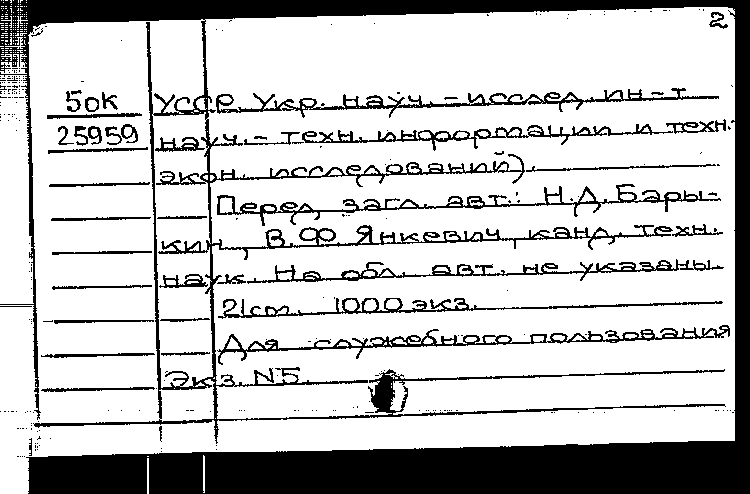 2
5ок УССР. Укр. науч.-исслед. ин-т
25959 науч.- техн. информации и техн.-
экон. исследований).
Перед загл. авт.: Н.Д. Бары-
кин, В.Ф. Янкевич, канд. техн.
наук. На обл. авт. не указаны
21cm. 1000 экз.
Для служебного пользования
Экз. N5.